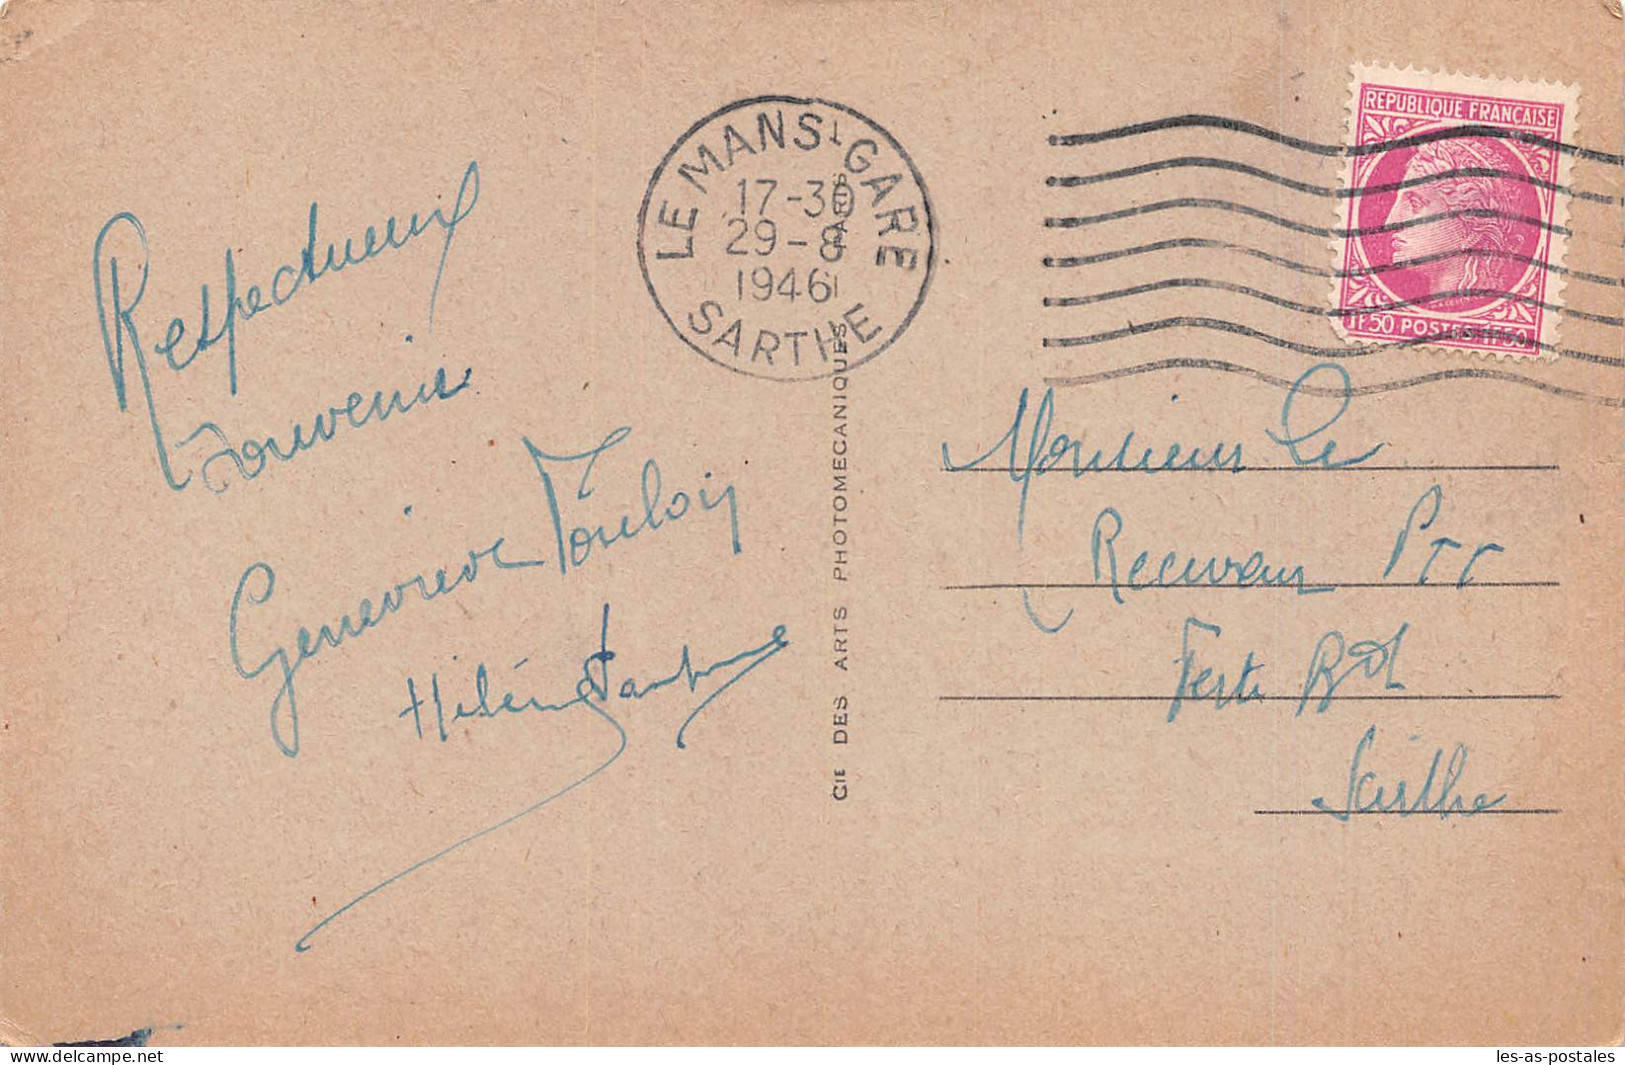 Respectueux
Souvenir
Geneviève
Hélène
LE MANS GARE
17-30
29-8
1946
SARTHE
REPUBLIQUE FRANÇAISE
1F50 POSTES 1F50
CIE DES ARTS PHOTOMECANIQUES
PARIS
Monsieur Le
Receveur PTT
Ferté Bd
Sarthe
delcampe.net
les-as-postales